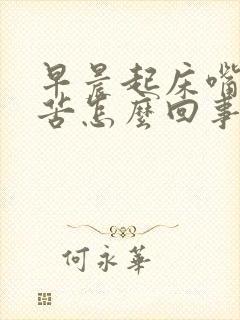 早晨起床嘴
苦怎麼回事
何永華